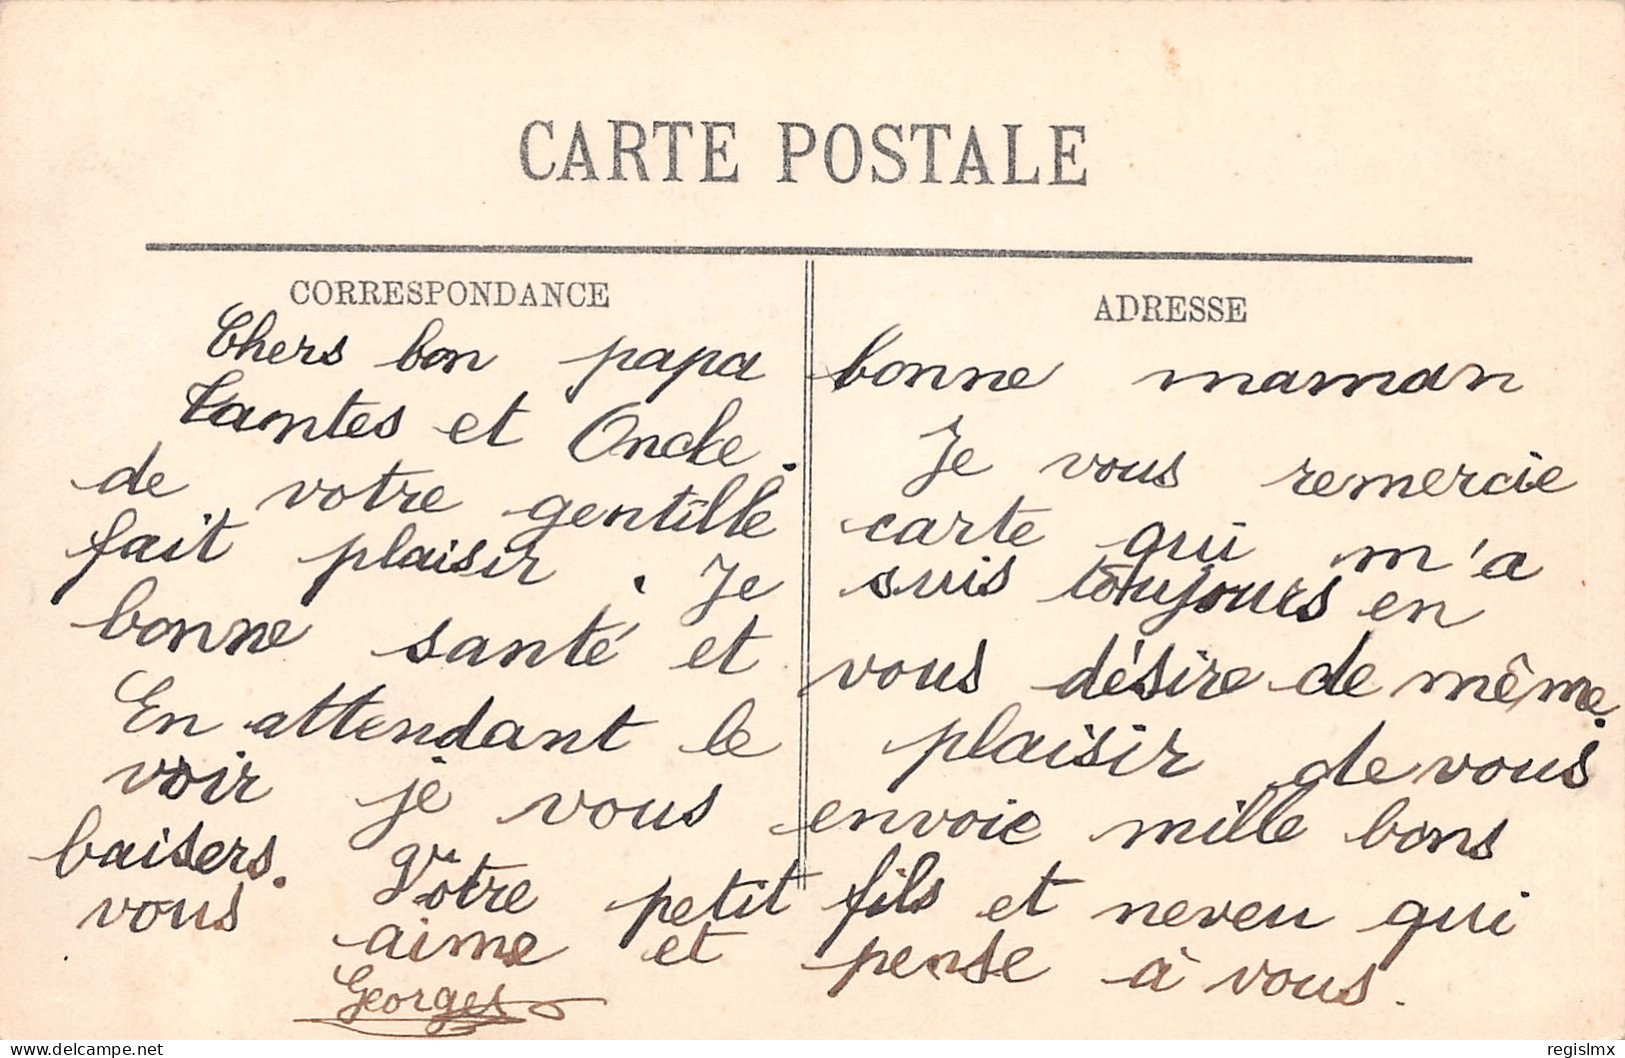 CARTE POSTALE
CORRESPONDANCE
ADRESSE
Chers bon papa bonne maman
Tantes et Oncle. Je vous remercie
de votre gentille carte qui m'a
fait plaisir. Je suis toujours en
bonne santé et vous désire de même.
En attendant le plaisir de vous
voir je vous envoie mille bons
baisers. Votre petit fils et neveu qui
vous aime et pense à vous.
Georges
delcampe.net
regislmx